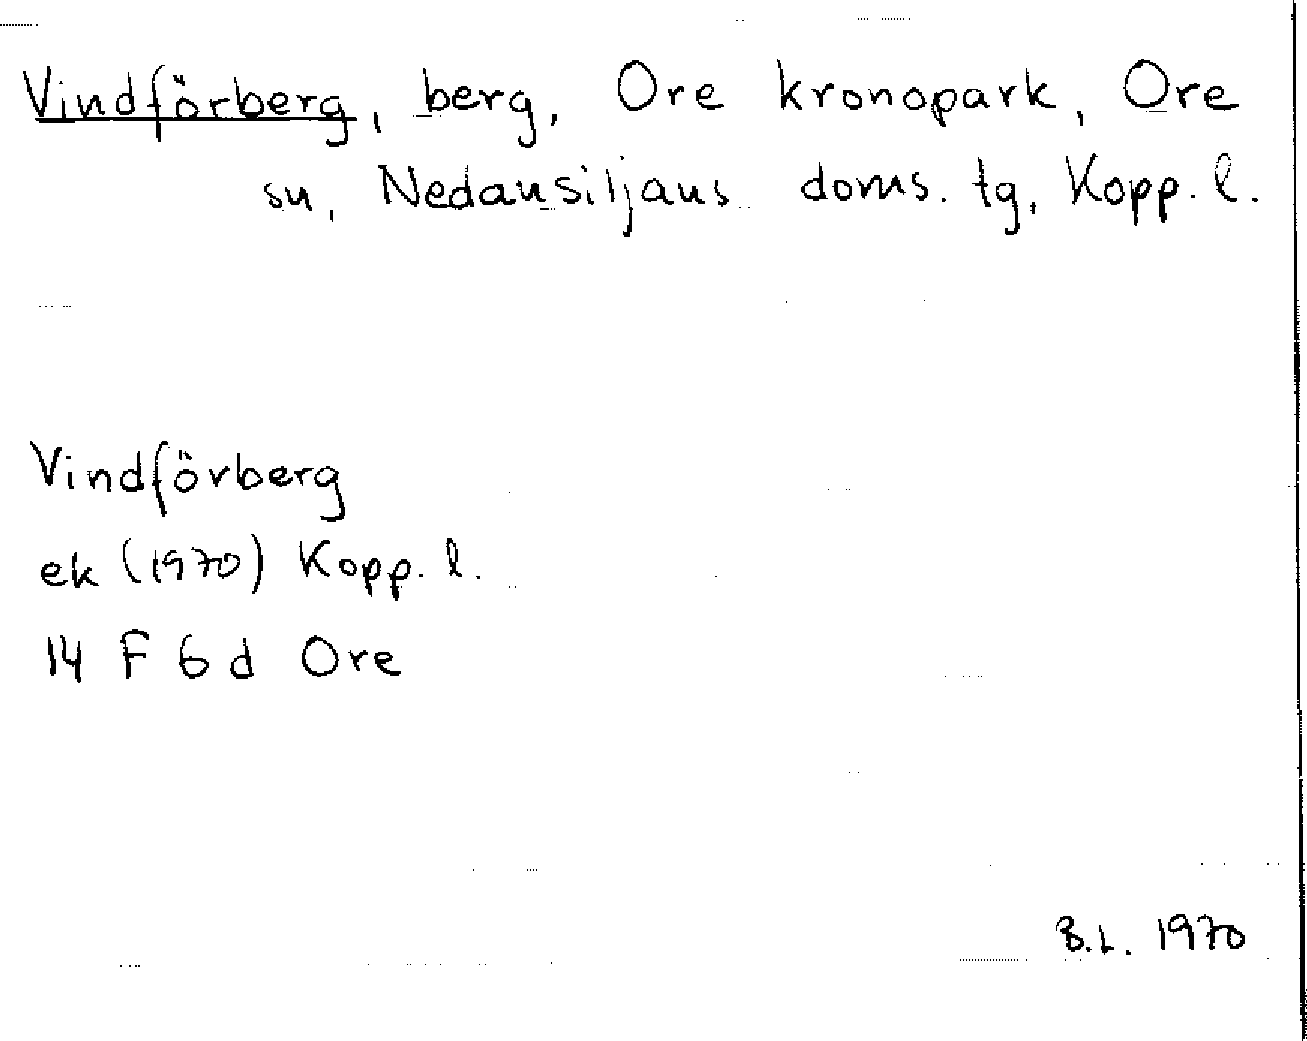 Vindförberg, berg, Ore kronopark, Ore
sn, Nedansiljans doms. tg, Kopp. l.
Vindförberg
ek (1970) Kopp. l.
14 F 6 d Ore
B.L. 1970